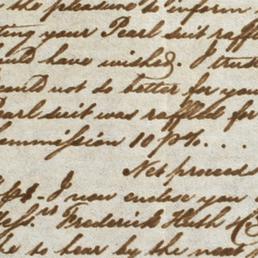 the pleasure to inform
ting your Pearl suit raffl
ould have wished. I trus
could not do better for you
Pearl suit was raffled for
ommission 10 p%. . . .
Net proceeds
I now enclose you
Mess.rs Frederick Huth & C
to hear by the next